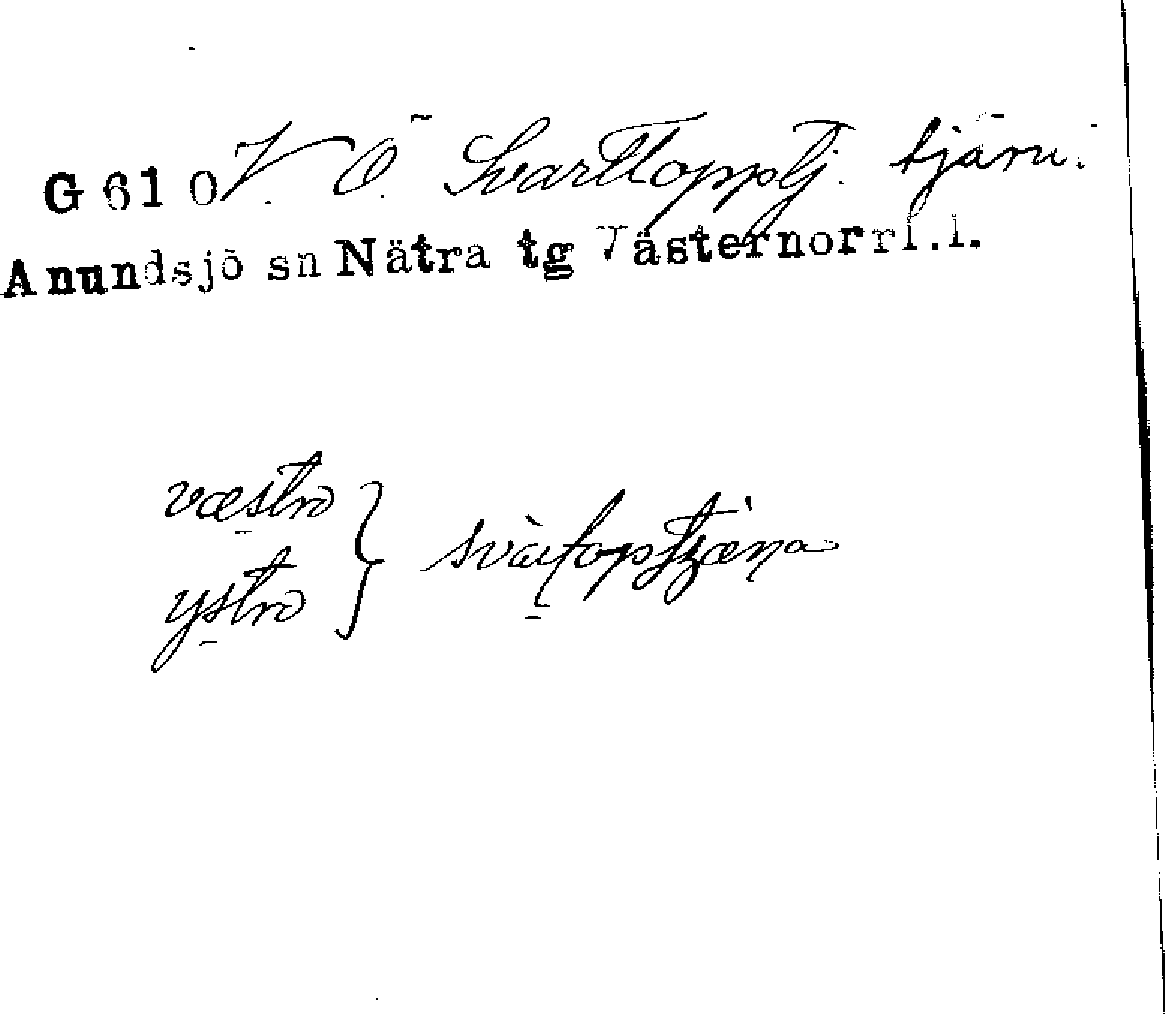 G 61 o V. Ö. Svarttopptj. tjärn.
Anundsjö sn Nätra tg Västernorrl.l.
væstro
ystro } svàrtoptjæṇa